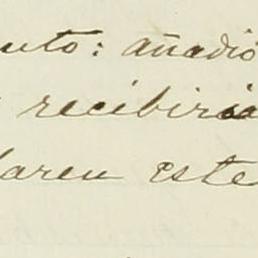 uto: añadió
recibiria
daren este